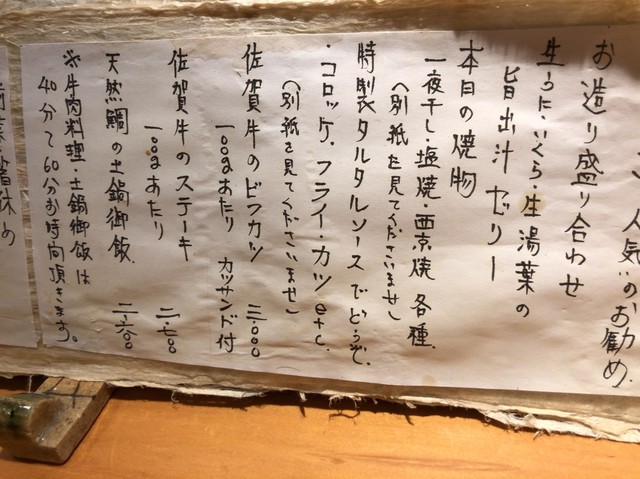 人気のお勧め.
お造り盛り合わせ
生うに、いくら・生湯葉の
旨出汁ゼリー
本日の焼物
一夜干し・塩焼・西京焼 各種.
(別紙を見てくださいませ)
特製タルタルソースでどうぞ。
・コロッケ、フライ・カツ etc.
(別紙を見てくださいませ)
佐賀牛のビフカツ 三、〇〇〇
一〇〇gあたり カツサンド付
佐賀牛のステーキ
一〇〇gあたり 二、七〇〇
天然鯛の土鍋御飯. 二、六〇〇
※牛肉料理・土鍋御飯は
40分〜60分お時間頂きます。